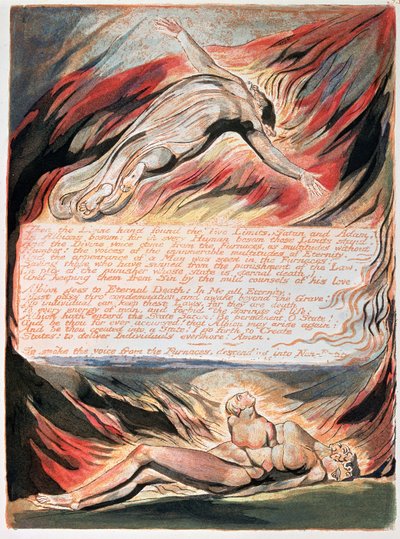 Then the Divine hand found the Two Limits, Satan and Adam,
In Albions bosom: for in every Human bosom those Limits stand.
And the Divine voice came from the Furnaces, as multitudes without
Number! the voices of the innumerable multitudes of Eternity.
And the appearance of a Man was seen in the Furnaces;
Saving those who have sinned from the punishment of the Law,
(In pity of the punisher whose state is eternal death,)
And keeping them from Sin by the mild counsels of his love.
Albion goes to Eternal Death: In Me all Eternity.
Must pass thro' condemnation, and awake beyond the Grave!
No individual can keep these Laws, for they are death
To every energy of man, and forbid the springs of life;
Albion hath enterd the State Satan! Be permanent O State!
And be thou for ever accursed! that Albion may arise again:
And be thou created into a State! I go forth to Create
States: to deliver Individuals evermore! Amen.
So spoke the voice from the Furnaces, descending into Non-Entity